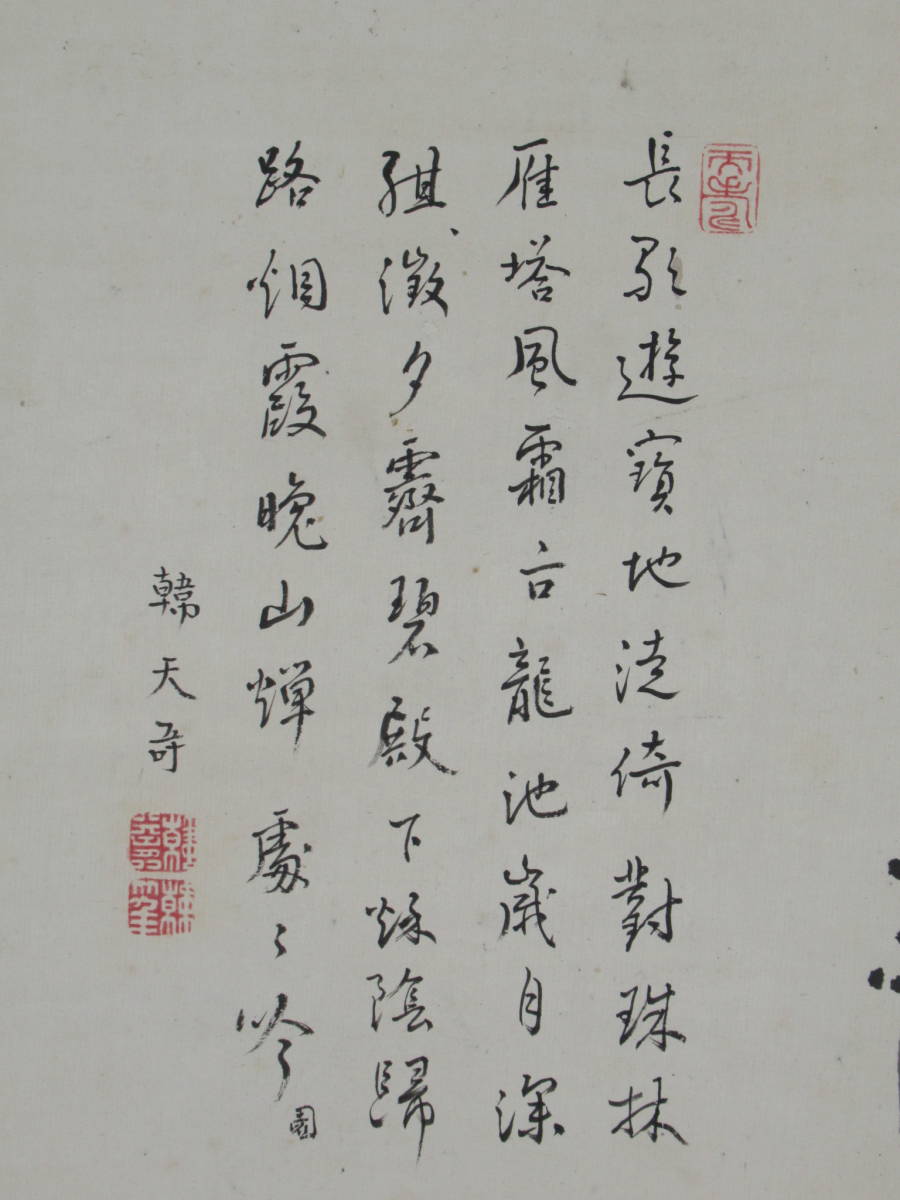 長歌遊寶地徙倚對珠林
雁塔風霜古龍池歲月深
紺澂夕霽碧殿下秌陰歸
路烟霞晚山蟬處々吟
園
韓天壽